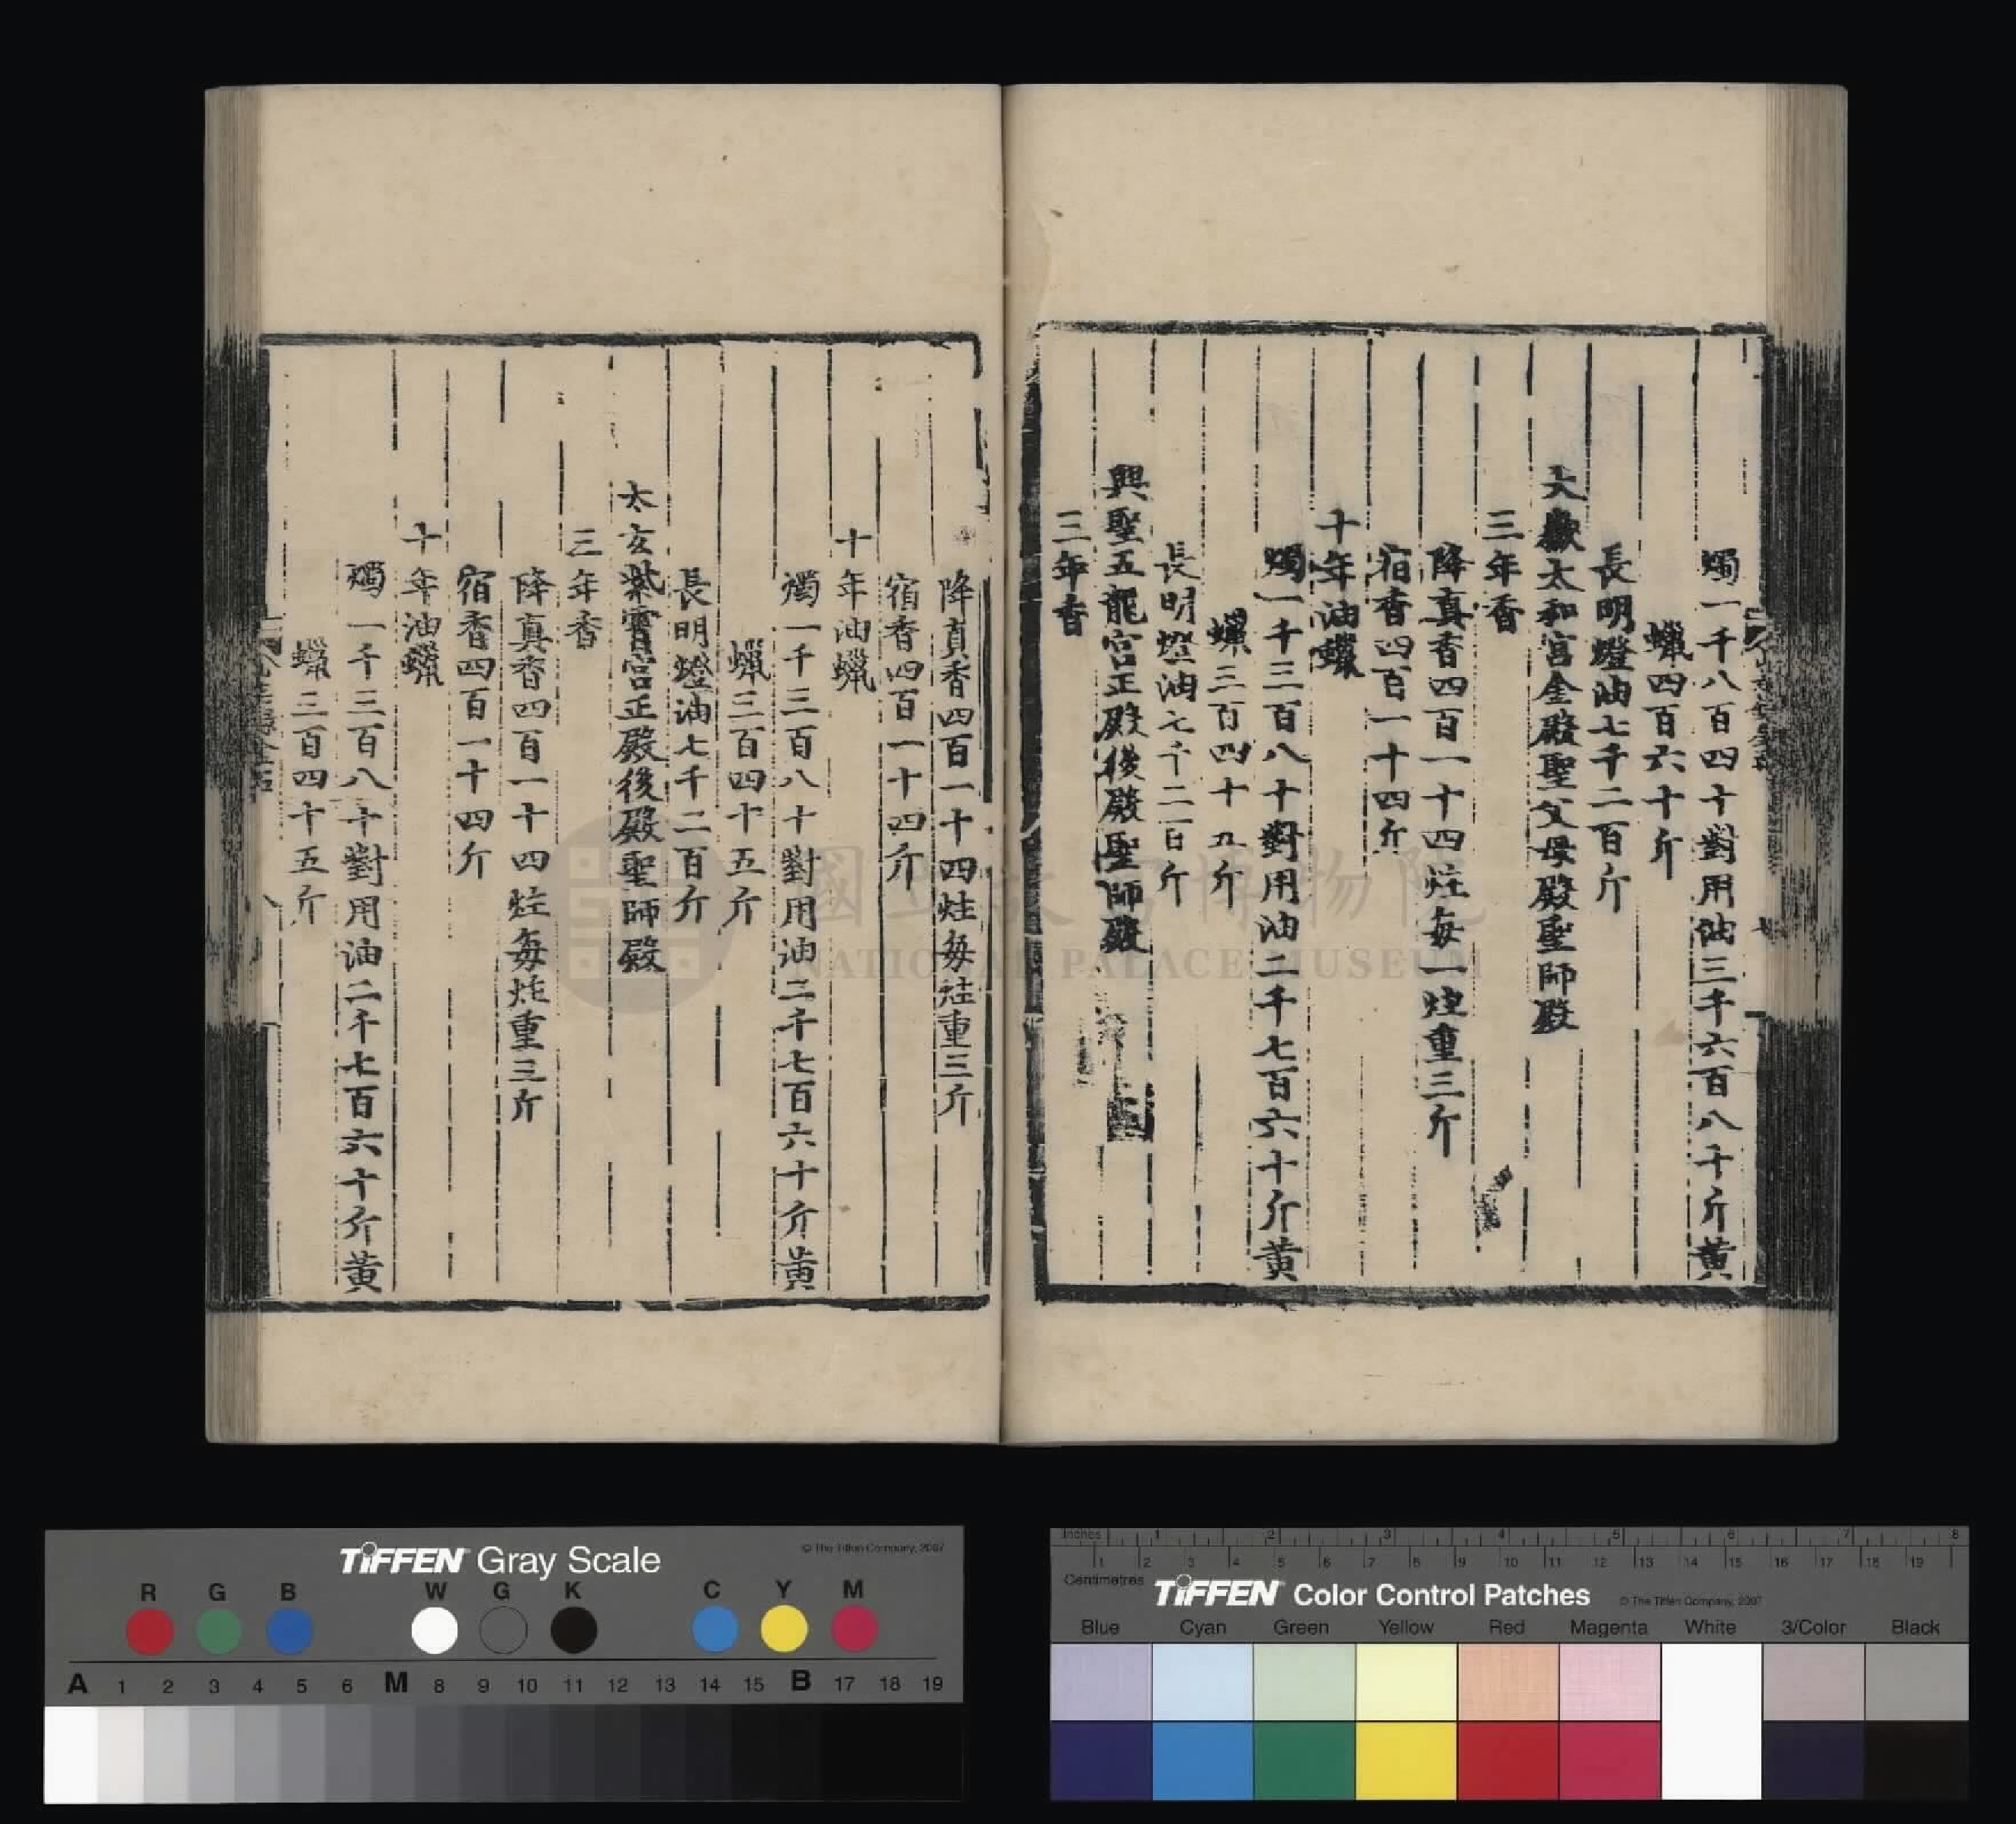 燭一千八百四十對用油三千六百八十斤黃
蠟四百六十斤
長明燈油七千二百斤
大嶽太和宮金殿聖父母殿聖師殿
三年香
降真香四百一十四炷每一炷重三斤
宿香四百一十四斤
十年油蠟
燭一千三百八十對用油二千七百六十斤黃
蠟三百四十五斤
長明燈油七千二百斤
興聖五龍宮正殿後殿聖師殿
三年香
降真香四百一十四炷每炷重三斤
宿香四百一十四斤
十年油蠟
燭一千三百八十對用油二千七百六十斤黃
蠟三百四十五斤
長明燈油七千二百斤
太玄紫霄宮正殿後殿聖師殿
三年香
降真香四百一十四炷每炷重三斤
宿香四百一十四斤
十年油蠟
燭一千三百八十對用油二千七百六十斤黃
蠟三百四十五斤
國立故宮博物院
NATIONAL PALACE MUSEUM
TIFFEN Gray Scale
© The Tiffen Company, 2007
R G B W G K C Y M
A 1 2 3 4 5 6 M 8 9 10 11 12 13 14 15 B 17 18 19
Inches 1 2 3 4 5 6 7 8
1 2 3 4 5 6 7 8 9 10 11 12 13 14 15 16 17 18 19
Centimetres
TIFFEN Color Control Patches
© The Tiffen Company, 2007
Blue Cyan Green Yellow Red Magenta White 3/Color Black